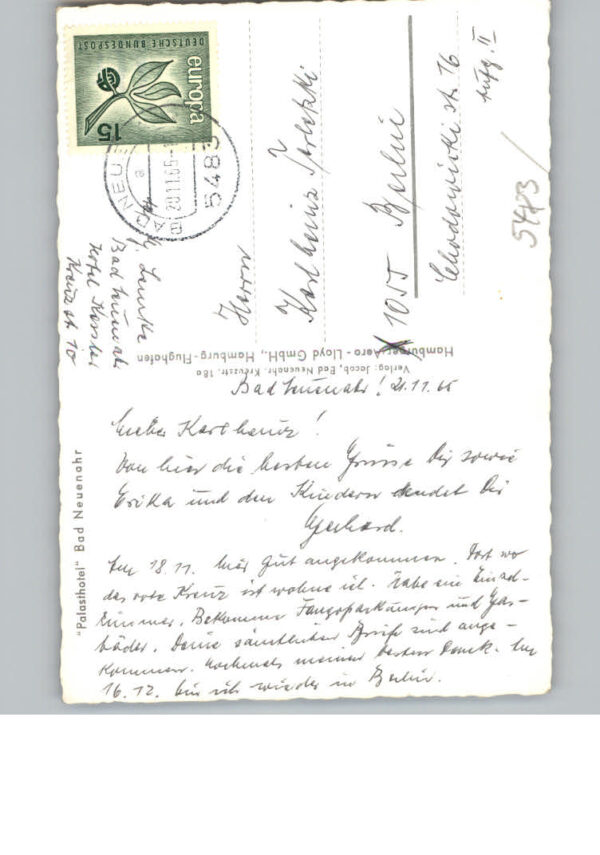 DEUTSCHE BUNDESPOST
europa
15
BAD NEUE
a
5483
G. Lemke
Bad Neuenahr
Hotel Kessler
Kreuz str 10
Herrn
Karlheinz
1055 Berlin
Chodowiecki str. 16
Aufg. II
5483
Hamburger Aero-Lloyd GmbH., Hamburg-Flughafen
Verlag: Jacob, Bad Neuenahr, Kreuzstr. 18a
"Palasthotel" Bad Neuenahr
Bad Neuenahr! 21.11.65
Lieber Karlheinz!
Von hier die besten Grüsse Dir sowie
Erika und den Kindern sendet Dir
Gerhard.
Am 18.11. hier Gut angekommen. Dort wo
das rote Kreuz ist wohne ich. Habe ein Einzel-
Zimmer. Bekomme Fangopackungen und Gas-
bäder. Deine sämtlichen Briefe sind ange-
kommen. Nochmals meinen besten Dank. Am
16.12. bin ich wieder in Berlin.